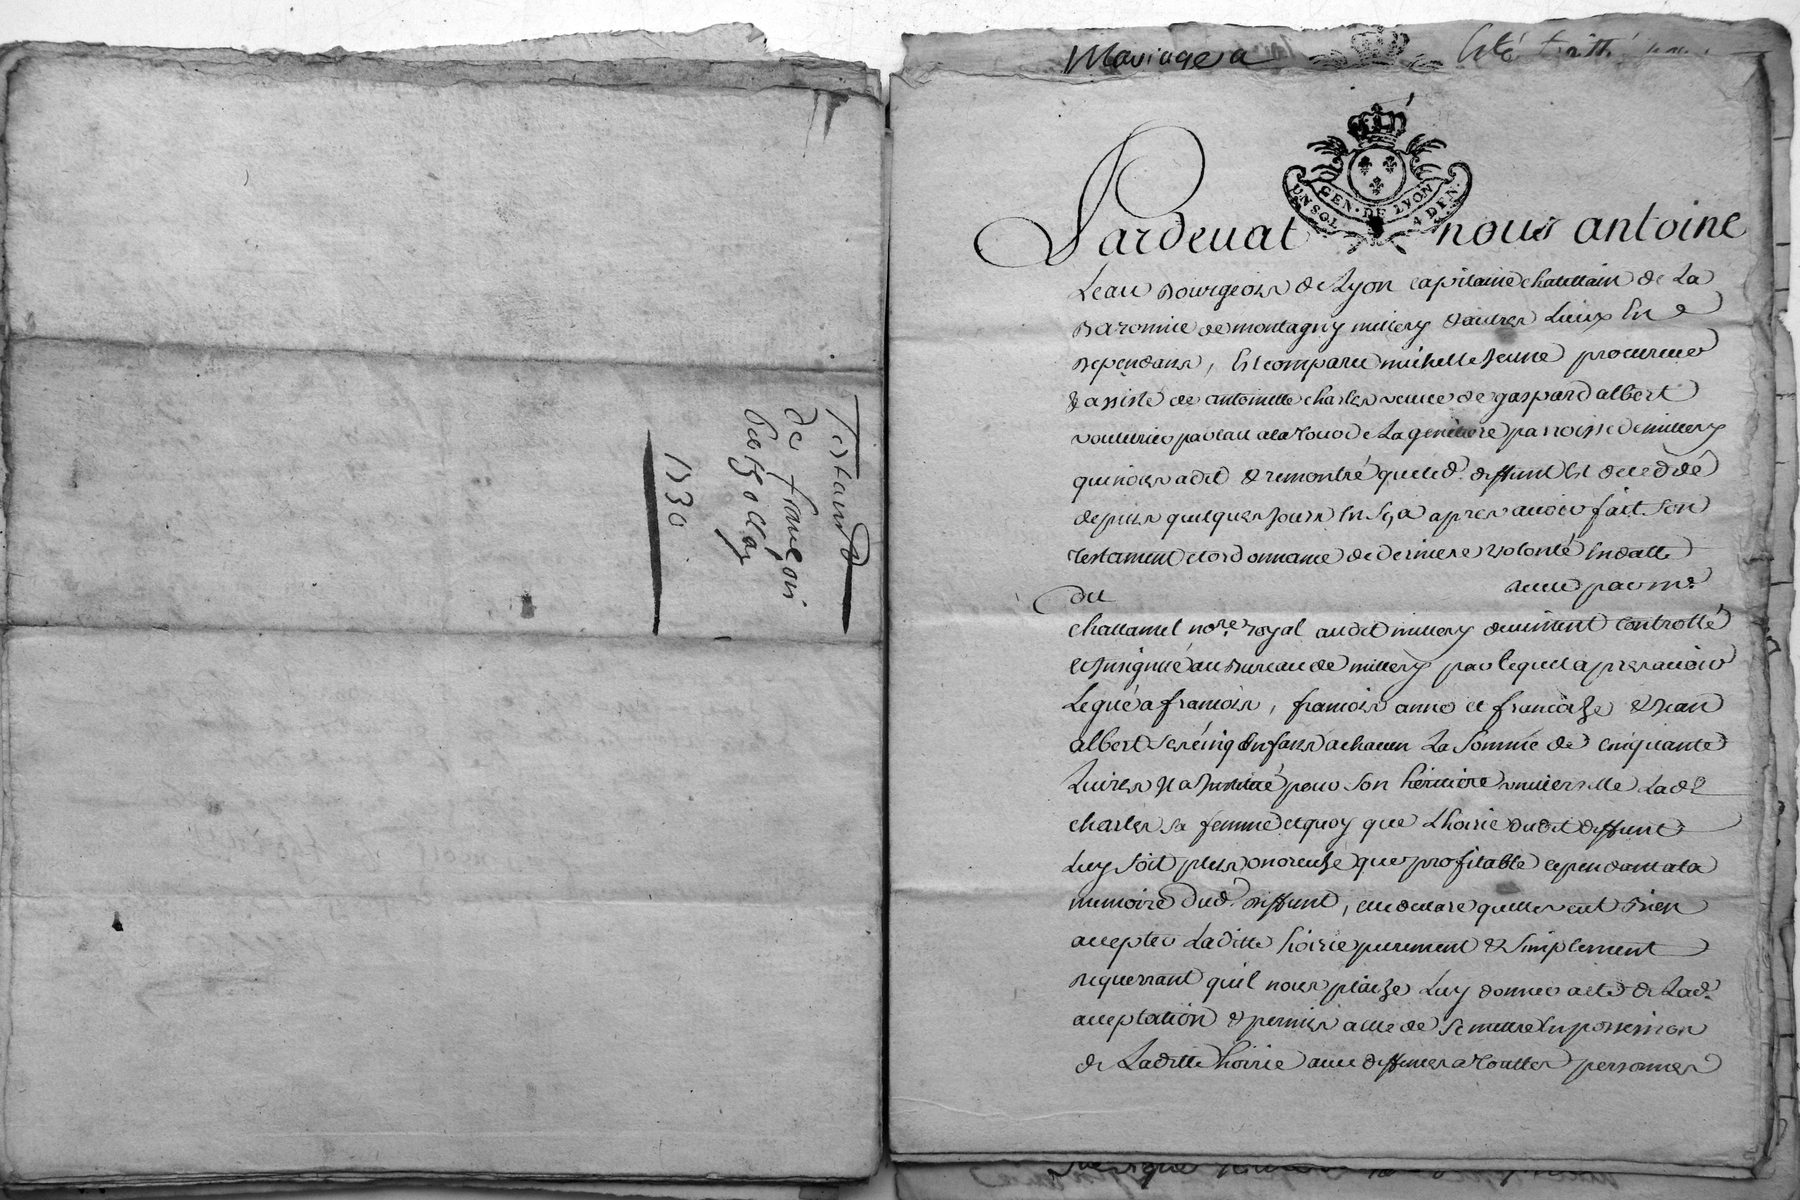 Testament
de françois
1730
Mariage a
GEN. DE LYON
UN SOL
4 DEN.
Pardevat nous antoine
Leau Bourgeois de Lyon capitaine chatellain de La
Baronnie de montagny millery & autres Lieux En
dependans, Est comparu michelle Jeune procureur
& assisté de antoinette charles veuve de gaspard albert
voiturier par eau a la roue de La paroisse de millery
qui nous a dit & remontré que led. deffunt Est decedé
depuis quelques jours En ça apres avoir fait son
testament et ordonnance de derniere volonté En datte
du receu par me.
chattamel nore. royal audit millery duement controllé
et Insignué au Bureau de millery par lequel apres avoir
Legué a francois, francois anne et francoise & jean
albert ses cinq Enfans a chacun La somme de cinquante
Livres Il a Institué pour son heritiere universelle Lade
charles sa femme et quoy que Lhoirie dudit deffunt
Luy soit plus onoreuse que profitable cependant a la
memoire dud. deffunt, elle declare quelle veut Bien
accepter Laditte hoirie purement & simplement
requerrant quil nous plaize Luy donner acte de Lad.
acceptation & permis a elle de se mettre En possession
de Laditte hoirie avec deffenses a touttes personnes